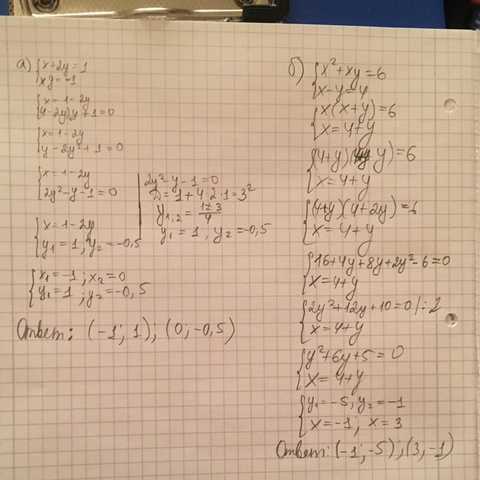 а) { x + 2y = 1
{ xy = -1
{ x = 1 - 2y
{ (1 - 2y)y + 1 = 0
{ x = 1 - 2y
{ y - 2y² + 1 = 0
{ x = 1 - 2y
{ 2y² - y - 1 = 0
2y² - y - 1 = 0
D = 1 + 4·2·1 = 3²
y₁,₂ = (1 ± 3)/4
y₁ = 1, y₂ = -0,5
{ x = 1 - 2y
{ y₁ = 1, y₂ = -0,5
{ x₁ = -1; x₂ = 0
{ y₁ = 1; y₂ = -0,5
Ответ: (-1; 1); (0; -0,5)
б) { x² + xy = 6
{ x - y = 4
{ x(x + y) = 6
{ x = 4 + y
{ x = 4 + y
{ (4 + y)(4 + 2y) = 6
{ x = 4 + y
{ 16 + 4y + 8y + 2y² - 6 = 0
{ x = 4 + y
{ 2y² + 12y + 10 = 0 | : 2
{ x = 4 + y
{ y² + 6y + 5 = 0
{ x = 4 + y
{ y₁ = -5, y₂ = -1
{ x = -1; x = 3
Ответ: (-1; -5); (3; -1)